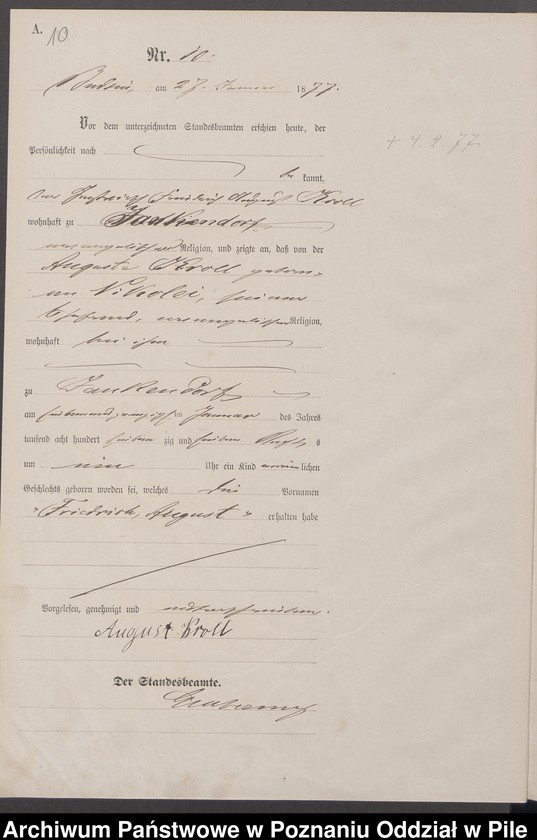 A.
10
Nr. 10.
Budsin, am 27. Januar 1877.
+ 4. 2. 77
Vor dem unterzeichneten Standesbeamten erschien heute, der
Persönlichkeit nach
be kannt,
der Friedrich August Kroll
wohnhaft zu Jankendorf
evangelischer Religion, und zeigte an, daß von der
Auguste Kroll gebore-
nen Nikolei, seiner
Ehefrau, evangelischer Religion,
wohnhaft bei ihm
zu Jankendorf
am siebenundzwanzigsten Januar des Jahres
tausend acht hundert sieben zig und sieben Nachts
um ein Uhr ein Kind männlichen
Geschlechts geboren worden sei, welches die Vornamen
"Friedrich, August" erhalten habe
Vorgelesen, genehmigt und unterschrieben.
August Kroll
Der Standesbeamte.
Archiwum Państwowe w Poznaniu Oddział w Pile